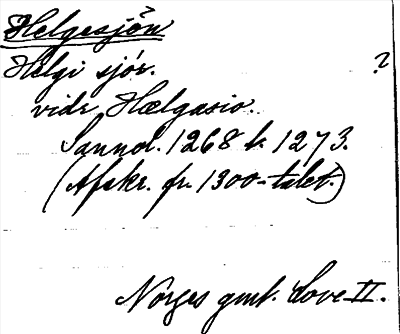 Helgesjön ?
Helgi sjór. ?
vidr Hælgasio.
Sannol. 1268 k. 1273.
(Afskr. fr. 1300-talet.)
Norges gml. Love II.